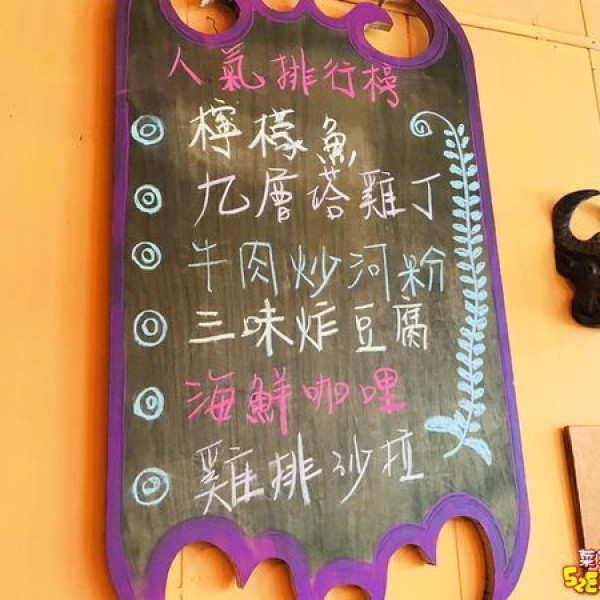 人氣排行榜
檸檬魚
九層塔雞丁
牛肉炒河粉
三味炸豆腐
海鮮咖哩
雞排沙拉